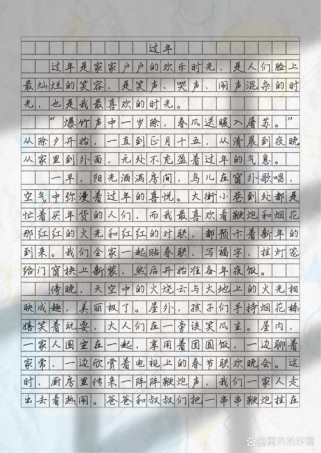 过年
过年是家家户户的欢乐时光，是人们脸上
最灿烂的笑容，是笑声、哭声、闹声混杂的时
光，也是我最喜欢的时光。
“爆竹声中一岁除，春风送暖入屠苏。”
从除夕开始，一直到正月十五，从清晨到夜晚
从家里到外面，无处不充盈着过年的气息。
一早，阳光洒满房间，鸟儿在窗外歌唱，
空气中弥漫着过年的喜悦。大街小巷到处都是
忙着买年货的人们，而我最喜欢看鞭炮和烟花
那红红的火光和红红的对联，都预示着新年的
到来。我们全家一起贴春联，写福字，挂灯笼
给门窗换上新装，然后开始准备年夜饭。
傍晚，天空中的火烧云与大地上的火光相
映成趣，美丽极了。屋外，孩子们手持烟花棒
嬉笑着玩耍，大人们在一旁谈笑风生。屋内，
一家人围坐在一起，享用着团圆饭，一边聊着
家常，一边欣赏着电视上的春节联欢晚会。这
时，厨房里传来一阵阵鞭炮声，我们一家人走
出去看热闹。爸爸和叔叔们把一串串鞭炮挂在